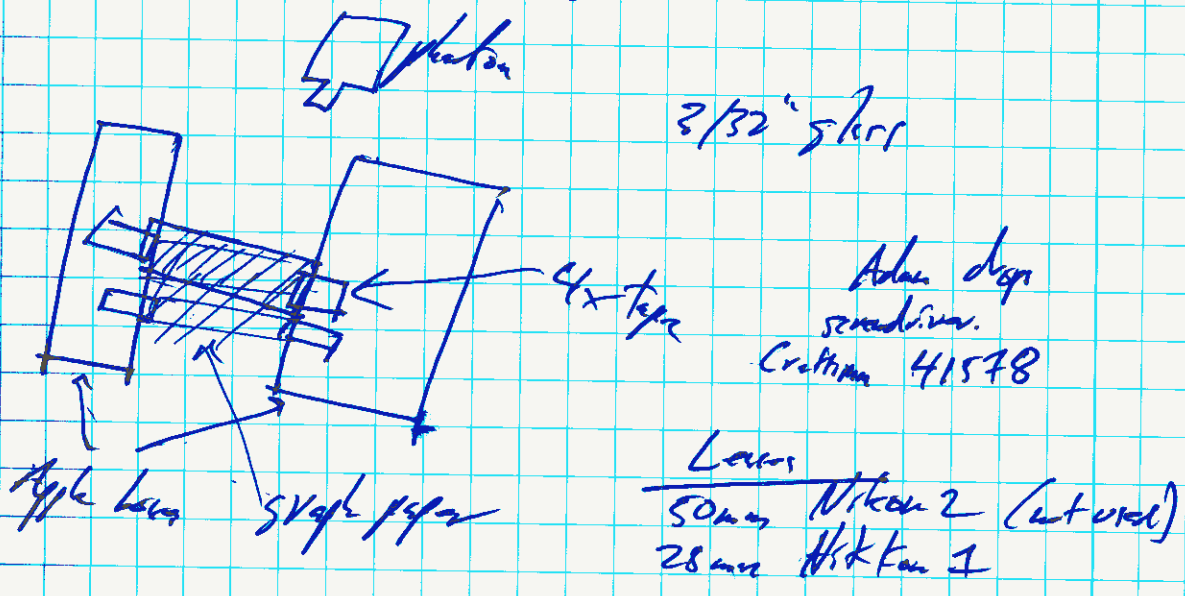 phantom
3/32" glass
Adam drops
screwdriver.
Craftsman 41578
4x tape
Apple boxes
graph paper
Lenses
50mm Nikon 2 (not used)
28mm Nikkon 1